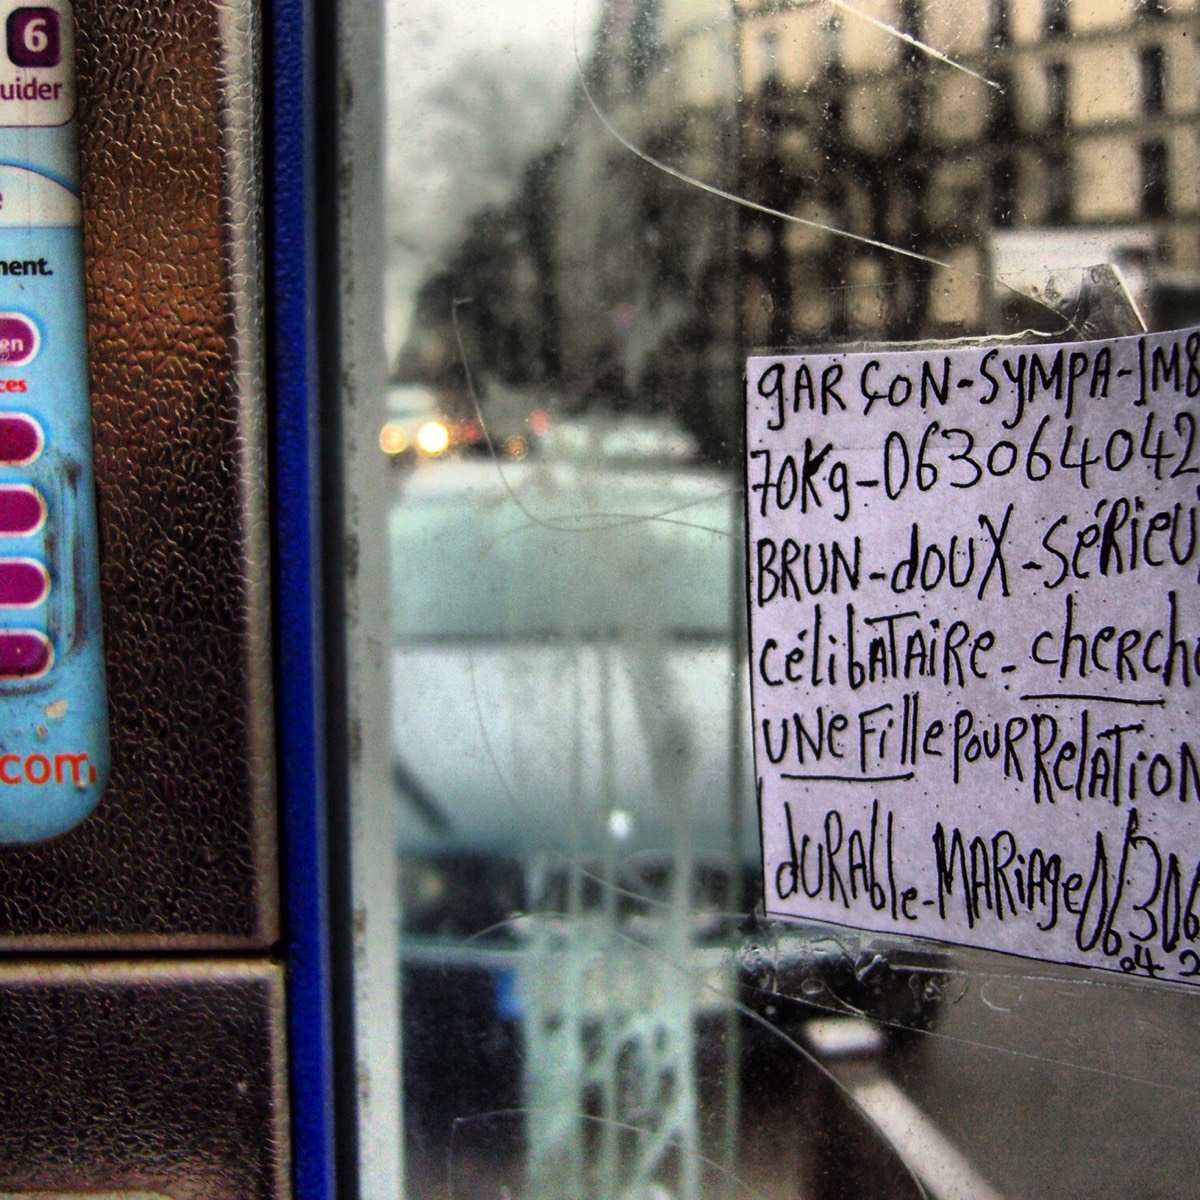 6
uider
e
ment.
en
ces
.com
gARÇON-SYMPA-1M8
70Kg-063064042
BRUN-doUX-SéRiEU
CélibATAiRe-cherche
UNe FillePOURRelATiON
dURAble-MARiAge 06306
04 2